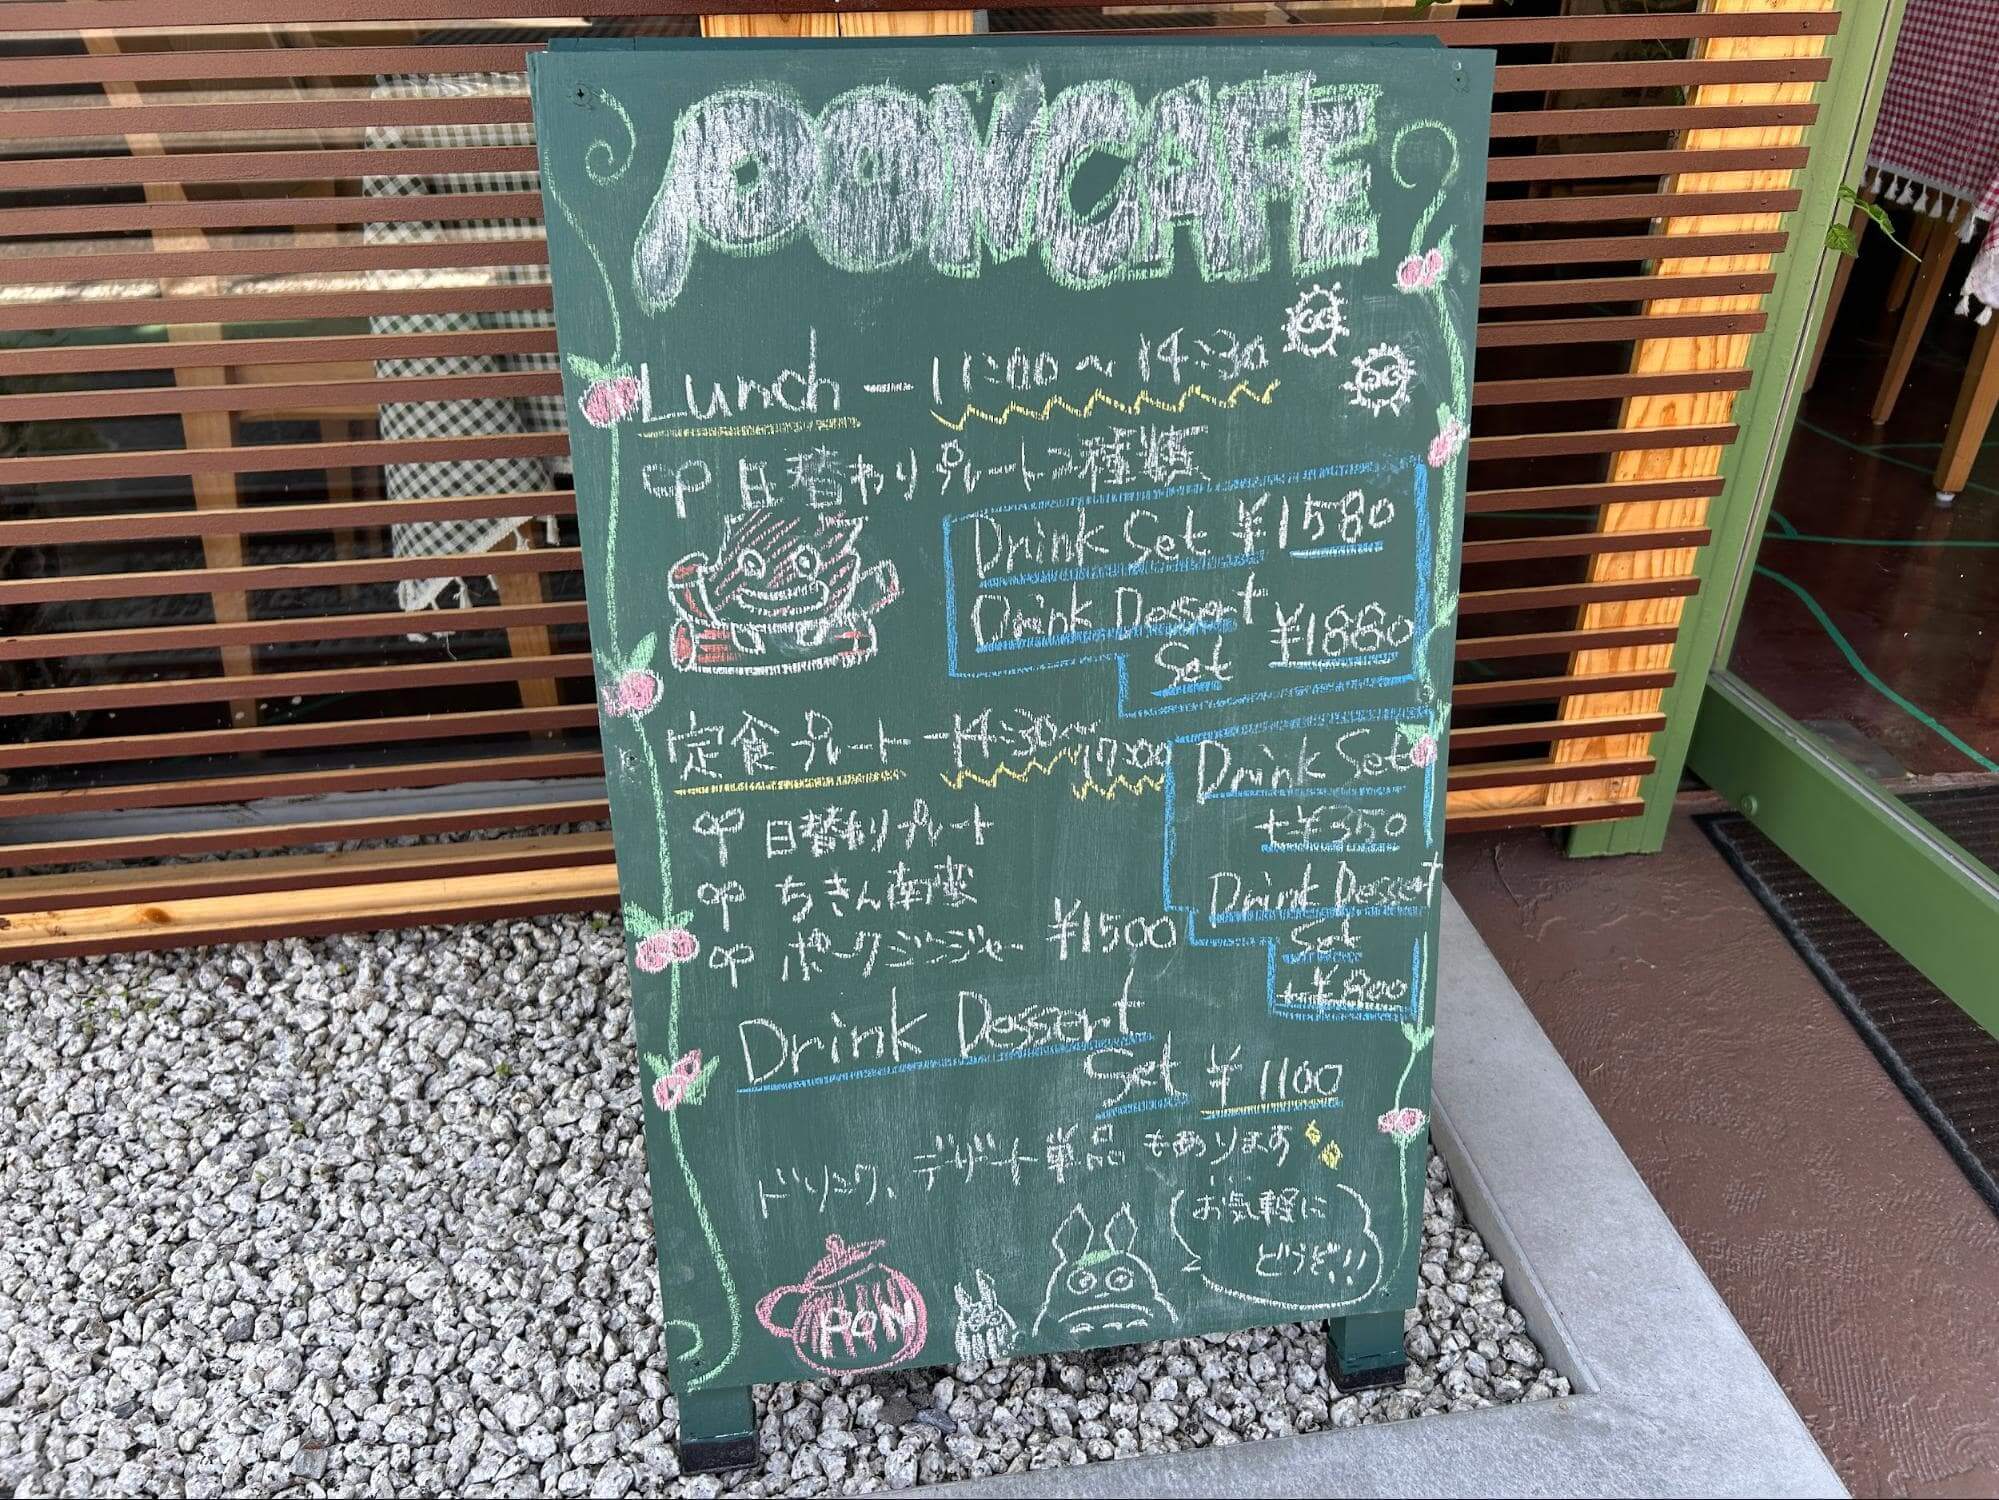 PONCAFE
Lunch — 11:00〜14:30
日替わりプレート2種類
Drink Set ¥1580
Drink Dessert
Set ¥1880
定食プレート — 14:30〜
17:00
日替わりプレート
ちきん南蛮
ポークジンジャー ¥1500
Drink Set
+¥350
Drink Dessert
Set
+¥800
Drink Dessert
Set ¥1100
ドリンク、デザート単品もあります
お気軽に
どうぞ!!
PON